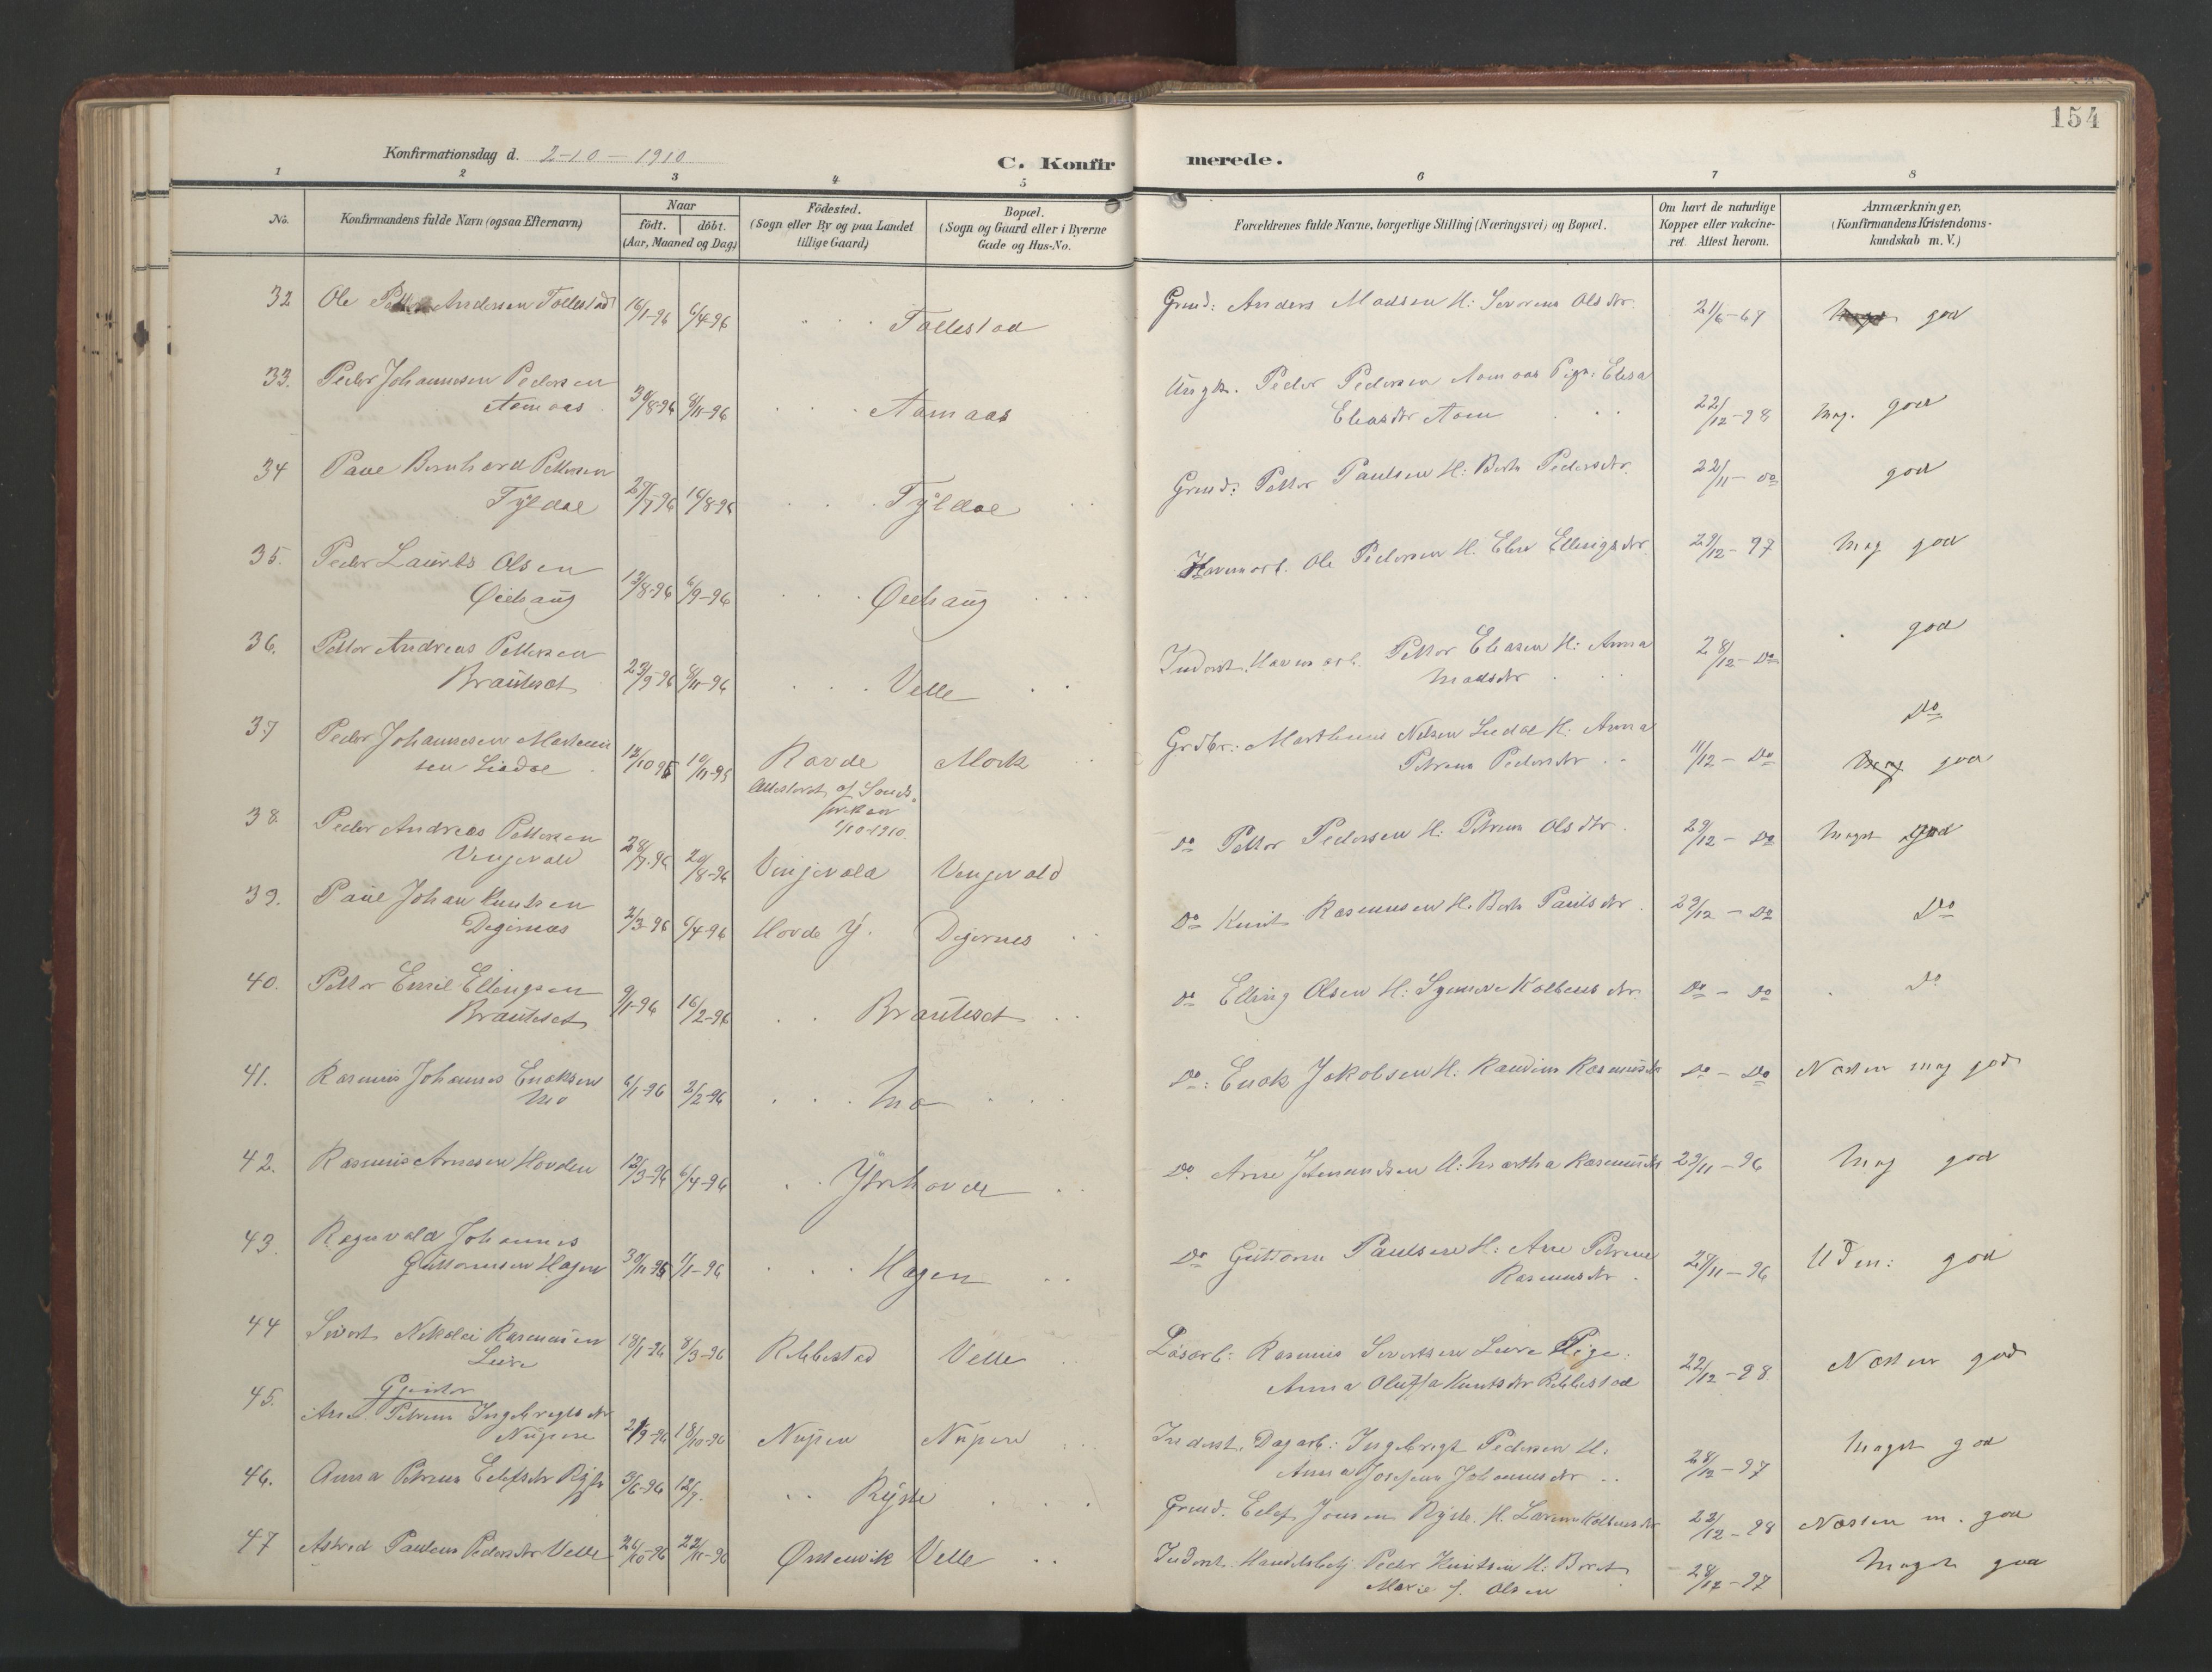 154
Konfirmationsdag d. 2-10-1910
C. Konfirmerede.
1 2 3 4 5 6 7 8
No.
Konfirmandens fulde Navn (ogsaa Efternavn)
Naar
födt. döbt.
(Aar, Maaned og Dag)
Födested.
(Sogn eller By og paa Landet
tillige Gaard)
Bopæl.
(Sogn og Gaard eller i Byerne
Gade og Hus-No.
Forældrenes fulde Navne, borgerlige Stilling (Næringsvei) og Bopæl.
Om havt de naturlige
Kopper eller vakcine-
ret. Attest herom.
Anmærkninger.
(Konfirmandens Kristendoms-
kundskab m. V.)
32 Ole Andersen Tollestad 16/1-96 6/4-96 Tollestad Grmd: Anders Madsen H: Severine Olsdtr. god
33. Peder Johannesen Pedersen
Aamaas 30/8-96 8/11-96 Aamaas Ungk. Peder Pedersen Aamaas Pige: Elisa
Eliasdtr Aam 22/12-98 Meg. god
34 Paul Bernhard Pettersen
Tyldal 27/7-96 16/8-96 Tyldal Grmd: Petter Paulsen H: Berte Pedersdtr. 22/11 - do god
35. Peder Laurits Olsen
Øiehaug 13/8-96 6/9-96 Øiehaug Havnearb. Ole Pedersen H. Elen Ellingsdtr 29/12-97 Meg god
36. Petter Andreas Pettersen
Brauteset 23/9-96 8/11-96 Velle Inderst. Havnearb. Petter Eliasen H: Anna
Madsdtr 28/12 - Do god
37 Peder Johannesen Martinu-
sen Lisdal 12/10 95 10/11-95 Ravde Mork Grdbr: Marthinus Nilsen H: Anna
Petrine Pedersdtr 11/12 - Do Do
Meg god
Attesteret af
1/10-1910.
38. Peder Andreas Pettersen
Vinjevold 28/7-96 20/8-96 Vinjevold Vinjevold Do Petter Pedersen H: Petrine Olsdtr. 29/12 - Do Meget god
39. Paul Johan Knutsen
Digernes 2/3-96 6/4-96 Hovde Y. Digernes Do Knut Rasmussen H. Berte Paulsdtr. 29/12 - Do Do
40. Petter Emil Ellingsen
Brauteset 9/1-96 16/2-96 Brauteset Do Elling Olsen H: Synneve Kolbensdtr Do - Do Do
41. Rasmus Johannes Enoksen
Mo 6/1-96 2/2-96 Mo Do: Enok Jakobsen H: Randine Rasmusdtr Do - Do Næsten meg god
42. Rasmus Arnesen Hovden 12/3-96 6/4-96 Ytrehovde Do. Arne H: Martha Rasmusdtr 29/11-96 Meg god
43. Ragnvald Johannes
Guttormsen Hagen 30/11-95 1/1-96 Hagen Do Guttorm Paulsen H: Ane Petrine
Rasmusdtr. 28/11-96 Udm: god
44 Sivert Nikolai Rasmussen
Leire 18/1-96 8/3-96 Rebbestad Velle Løsarb: Rasmus Sivertsen Leire Pige:
Anna Oluffa Knutsdtr Rebbestad 22/12-98 Næsten god
Piger
45. Ane Petrine Ingebrigtsdtr
Nupen 21/9-96 18/10-96 Nupen Nupen Inderst. Dagarb: Ingebrigt Pedersen H:
Anna Josefine Johannesdtr 28/12-97 Meget god
46. Anna Petrine Edefsdtr Ryste 3/6-96 12/7. Ryste Grmd. Edef Jonsen Ryste. H. Lavine Kolbensdtr 22/12-98 Næsten m. god
47 Astrid Pauline Pedersdtr Velle 26/10-96 22/11-96 Ørstenvik Velle Inderst. Handelsbetj. Peder Knutsen H: Beret
Marie f. Olsen 28/12-97 Meget god